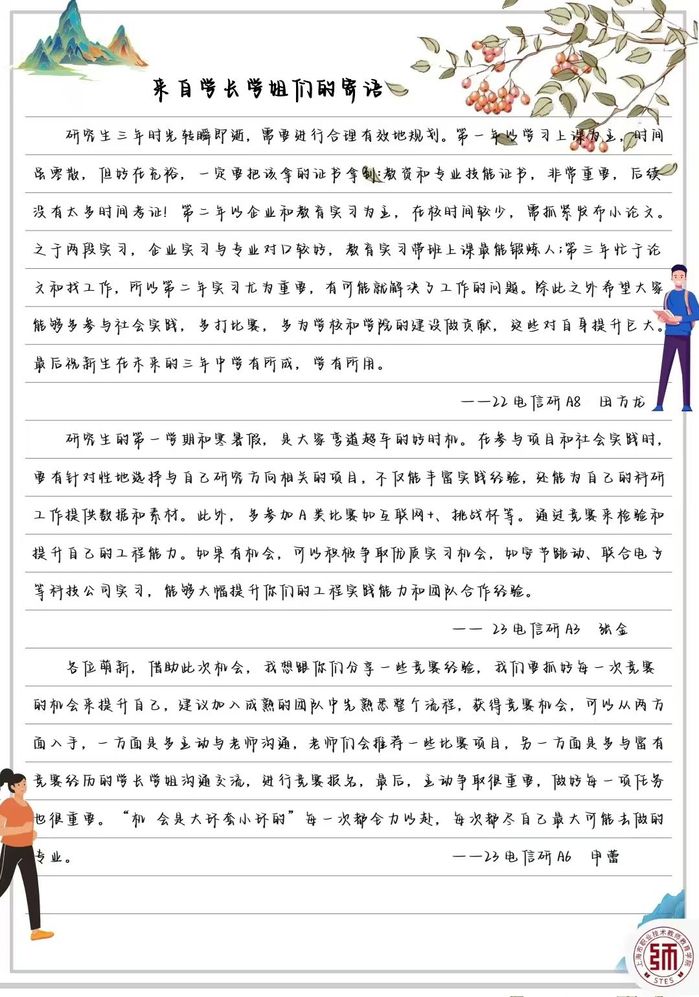 来自学长学姐们的寄语
研究生三年时光转瞬即逝，需要进行合理有效地规划。第一年以学习上课为主，时间
虽零散，但好在充裕，一定要把该拿的证书拿到:教资和专业技能证书，非常重要，后续
没有太多时间考证！第二年以企业和教育实习为主，在校时间较少，需抓紧发布小论文。
之于两段实习，企业实习与专业对口较好，教育实习带班上课最能锻炼人;第三年忙于论
文和找工作，所以第二年实习尤为重要，有可能就解决了工作的问题。除此之外希望大家
能够多参与社会实践，多打比赛，多为学校和学院的建设做贡献，这些对自身提升巨大。
最后祝新生在未来的三年中学有所成，学有所用。
——22电信研A8 田方龙
研究生的第一学期和寒暑假，是大家弯道超车的好时机。在参与项目和社会实践时，
要有针对性地选择与自己研究方向相关的项目，不仅能丰富实践经验，还能为自己的科研
工作提供数据和素材。此外，多参加A类比赛如互联网+、挑战杯等。通过竞赛来检验和
提升自己的工程能力。如果有机会，可以积极争取优质实习机会，如字节跳动、联合电子
等科技公司实习，能够大幅提升你们的工程实践能力和团队合作经验。
—— 23电信研A3 张金
各位萌新，借助此次机会，我想跟你们分享一些竞赛经验，我们要抓好每一次竞赛
的机会来提升自己，建议加入成熟的团队中先熟悉整个流程，获得竞赛机会，可以从两方
面入手，一方面是多主动与老师沟通，老师们会推荐一些比赛项目，另一方面是多与富有
竞赛经历的学长学姐沟通交流，进行竞赛报名，最后，主动争取很重要，做好每一项任务
也很重要。“机 会是大环套小环的”每一次都全力以赴，每次都尽自己最大可能去做的
专业。 ——23电信研A6 申蕾
上海市职业技术教师教育学院
STES